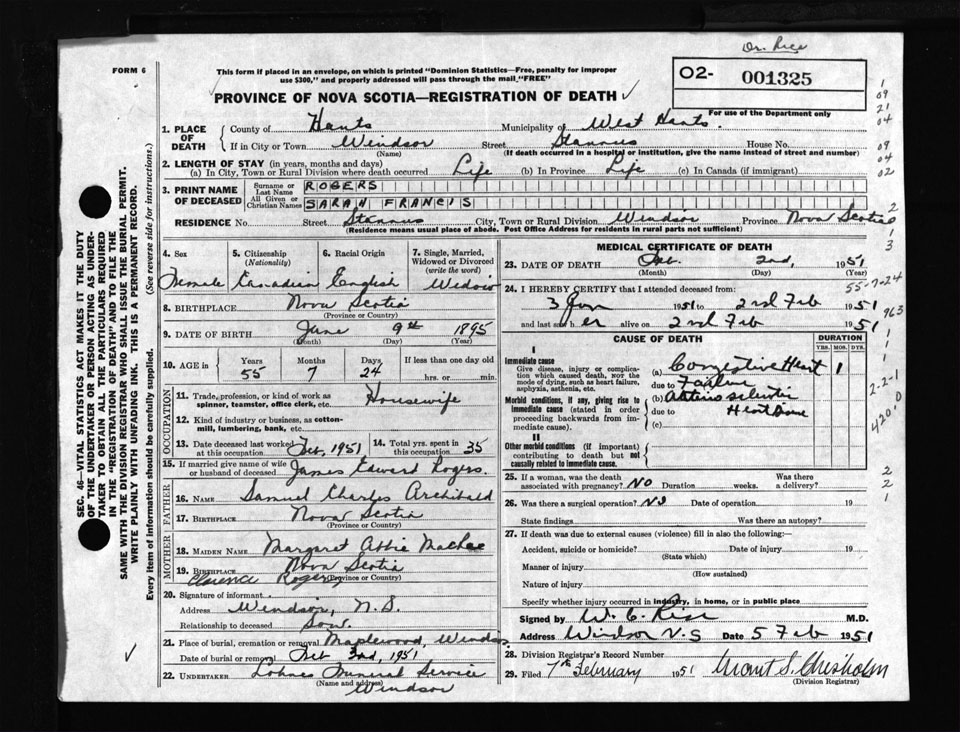 Dr. Rice
FORM 6
This form if placed in an envelope, on which is printed "Dominion Statistics—Free, penalty for improper use $300," and properly addressed will pass through the mail, "FREE"
O2- 001325
For use of the Department only
PROVINCE OF NOVA SCOTIA—REGISTRATION OF DEATH ✓
1. PLACE OF DEATH
County of Hants Municipality of West Hants.
If in City or Town Windsor Street Stannus House No.
(Name) (If death occurred in a hospital or institution, give the name instead of street and number)
2. LENGTH OF STAY (in years, months and days)
(a) In City, Town or Rural Division where death occurred Life (b) In Province Life (c) In Canada (if immigrant)
3. PRINT NAME OF DECEASED
Surname or Last Name ROGERS
All Given or Christian Names SARAH FRANCIS
RESIDENCE No. Street Stannus City, Town or Rural Division Windsor Province Nova Scotia
(Residence means usual place of abode. Post Office Address for residents in rural parts not sufficient)
4. Sex Female
5. Citizenship (Nationality) Canadian
6. Racial Origin English
7. Single, Married, Widowed or Divorced (write the word) Widow
8. BIRTHPLACE Nova Scotia
(Province or Country)
9. DATE OF BIRTH June 9th 1895
(Month) (Day) (Year)
10. AGE in Years 55 Months 7 Days 24 If less than one day old hrs. or min.
OCCUPATION
11. Trade, profession, or kind of work as spinner, teamster, office clerk, etc. Housewife
12. Kind of industry or business, as cotton-mill, lumbering, bank, etc.
13. Date deceased last worked at this occupation Feb, 1951
14. Total yrs. spent in this occupation 35
15. If married give name of wife or husband of deceased James Edward Rogers.
FATHER
16. NAME Samuel Charles Archibald
17. BIRTHPLACE Nova Scotia
(Province or Country)
MOTHER
18. MAIDEN NAME Margaret Abbie
19. BIRTHPLACE Nova Scotia
(Province or Country)
Clarence Rogers
20. Signature of informant
Address Windsor, N.S.
Relationship to deceased Son.
21. Place of burial, cremation or removal Maplewood, Windsor
Date of burial or removal Feb 3rd, 1951
22. UNDERTAKER Lohnes Funeral Service
(Name and address) Windsor
MEDICAL CERTIFICATE OF DEATH
23. DATE OF DEATH 2nd, 1951
(Month) (Day) (Year)
24. I HEREBY CERTIFY that I attended deceased from:
3 Jan 1951 to 2nd Feb 1951
and last saw her alive on 2nd Feb 1951
CAUSE OF DEATH DURATION
YRS. MOS. DYS.
I
Immediate cause
Give disease, injury or complication which caused death, NOR the mode of dying, such as heart failure, asphyxia, asthenia, etc.
(a) Congestive Heart 1
due to Failure
Morbid conditions, if any, giving rise to immediate cause (stated in order proceeding backwards from immediate cause).
(b) Arteriosclerotic
due to Heart Disease
(c)
II
Other morbid conditions (if important) contributing to death but not causally related to immediate cause.
25. If a woman, was the death associated with pregnancy? NO Duration weeks. Was there a delivery?
26. Was there a surgical operation? NO Date of operation 19
State findings Was there an autopsy?
27. If death was due to external causes (violence) fill in also the following:—
Accident, suicide or homicide? Date of injury 19
(State which)
Manner of injury
(How sustained)
Nature of injury
Specify whether injury occurred in industry, in home, or in public place
Signed by W. C. Rice M.D.
Address Windsor N.S Date 5 Feb 1951
28. Division Registrar's Record Number
29. Filed 7th February 1951 Grant S. Chisholm
(Division Registrar)
SEC. 46—VITAL STATISTICS ACT MAKES IT THE DUTY OF THE UNDERTAKER OR PERSON ACTING AS UNDERTAKER TO OBTAIN ALL THE PARTICULARS REQUIRED IN THE "REGISTRATION OF DEATH" AND TO FILE THE SAME WITH THE DIVISION REGISTRAR WHO SHALL ISSUE THE BURIAL PERMIT.
WRITE PLAINLY WITH UNFADING INK. THIS IS A PERMANENT RECORD.
Every item of information should be carefully supplied. (See reverse side for instructions.)
1
09
21
04
09
04
02
2
1
3
55-7-24
963
1
1
1
2-2-1
4200
2
2
1